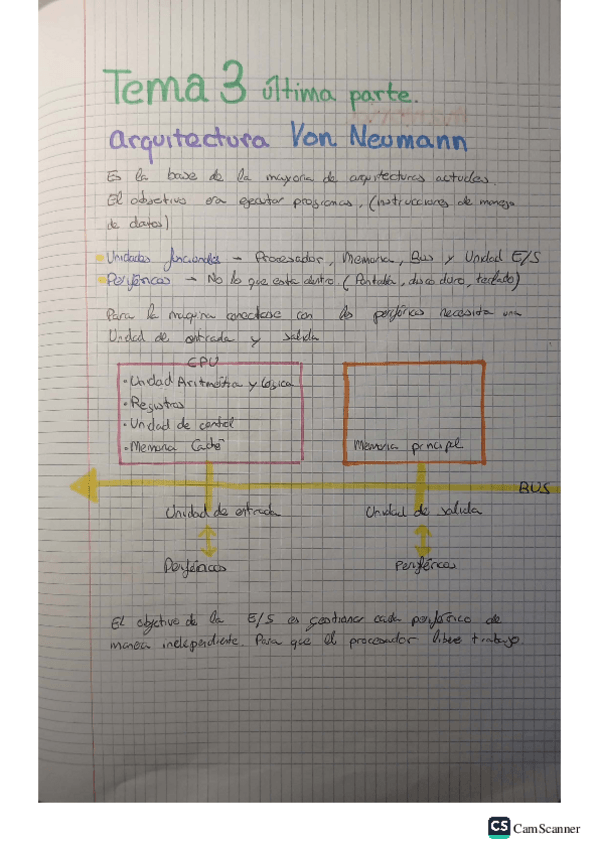 Tema 3 última parte.
arquitectura Von Neumann
Es la base de la mayoria de arquitecturas actuales.
El objetivo era ejecutar programas, (instrucciones de manejo
de datos)
• Unidades funcionales - Procesador, Memoria, Bus y Unidad E/S
• Periféricos → No lo que esta dentro. (Pantalla, disco duro, teclado)
Para la maquina conectarse con los periféricos necesita una
Unidad de entrada y salida
CPU
• Unidad Aritmética y Lógica
• Registros
• Unidad de control
• Memoria Caché
Memoria principal
BUS
Unidad de entrada
Unidad de salida
Periféricos
Periféricos
El objetivo de la E/S es gestionar cada periférico de
manera independiente. Para que el procesador libere trabajo.
CS CamScanner